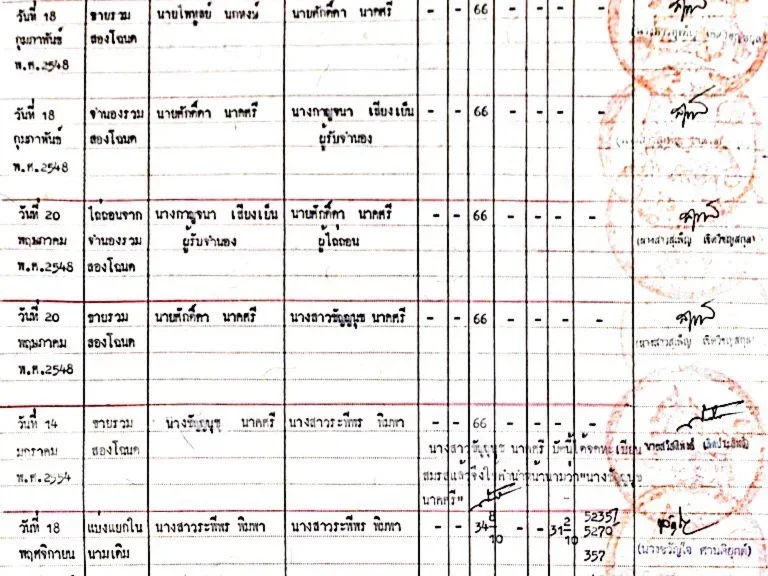 วันที่ 18 ขายรวม นายไพฑูลย์ นกหงษ์ นายศักดิ์ดา นาคศรี - - 66 - - - -
กุมภาพันธ์ สองโฉนด
พ.ศ.2548
วันที่ 18 จำนองรวม นายศักดิ์ดา นาคศรี นางกาญจนา เชียงเย็น - - 66 - - - -
กุมภาพันธ์ สองโฉนด ผู้รับจำนอง
พ.ศ.2548
วันที่ 20 ไถ่ถอนจาก นางกาญจนา เชียงเย็น นายศักดิ์ดา นาคศรี - - 66 - - - -
พฤษภาคม จำนองรวม ผู้รับจำนอง ผู้ไถ่ถอน
พ.ศ.2548 สองโฉนด
วันที่ 20 ขายรวม นายศักดิ์ดา นาคศรี นางสาวชัญญนุช นาคศรี - - 66 - - - -
พฤษภาคม สองโฉนด
พ.ศ.2548
วันที่ 14 ขายรวม นางชัญญนุช นาคศรี นางสาวระพีพร พิมพา - - 66 - - - -
มกราคม สองโฉนด นางสาวชัญญนุช นาคศรี บัดนี้ได้จดทะเบียน
พ.ศ.2554 สมรสแล้วจึงใช้คำนำหน้านามว่า"นางชัญญนุช
นาคศรี"
วันที่ 18 แบ่งแยกใน นางสาวระพีพร พิมพา นางสาวระพีพร พิมพา - - 34 8/10 - - 31 2/10 52351
พฤศจิกายน นามเดิม 5270
357 (นางขวัญใจ ศานติยุกต์)